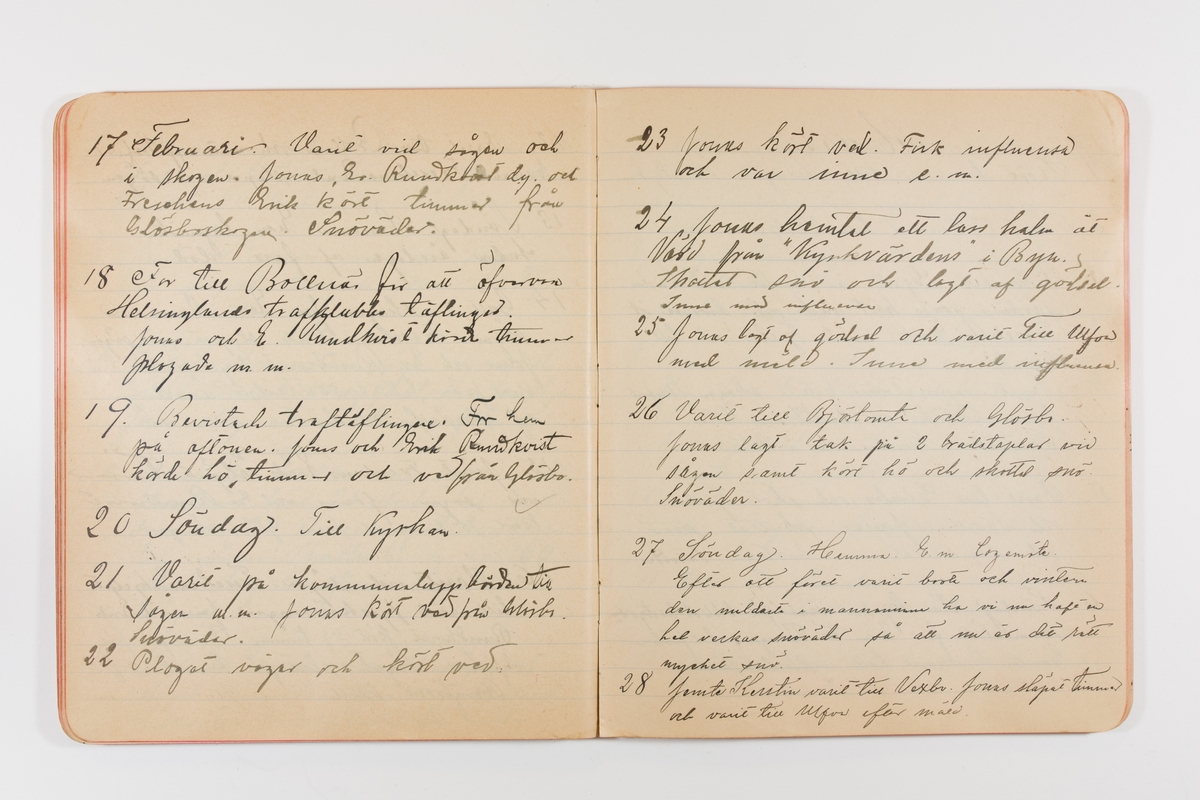 17 Februari. Varit vid sågen och
i skogen. Jonas, Er. Rundkvist dy. och
Freschens Erik kört timmer från
Glösboskogen. Snöväder.
18 For till Bollnäs för att öfvervara
Helsinglands trafklubbs täflingar.
Jonas och E. Rundkvist körde timmer
plogade m. m.
19. Bevistade traftäflingar. For hem
på aftonen. Jonas och Erik Rundkvist
körde hö, timmer och ved från Glösbo.
20 Söndag. Till Kyrkan.
21 Varit på kommunaluppbörden
Sågen m.m. Jonas kört ved från Glösbo.
Snöväder.
22 Plogat vägar och kört ved.
23 Jonas kört ved. Fick influensa
och var inne e. m.
24 Jonas hemtat ett lass halm åt
från "Kyrkvärdens" i Byn.
Skottat snö och lagt af gödsel.
Inne med influensa
25 Jonas lagt af gödsel och varit till Ulfva
med mäld. Inne med influensa.
26 Varit till Björtomta och Glösbo.
Jonas lagt tak på 2 brädstaplar vid
sågen samt kört hö och skottat snö.
Snöväder.
27 Söndag. Hemma. E.m. Logemöte.
Efter att föret varit borta och vintern
den mildaste i mannaminne ha vi nu haft en
hel veckas snöväder så att nu är det rätt
mycket snö.
28 Jemte Kerstin varit till Vexbo. Jonas släpat timmer
och varit till Ulfva efter mäld.